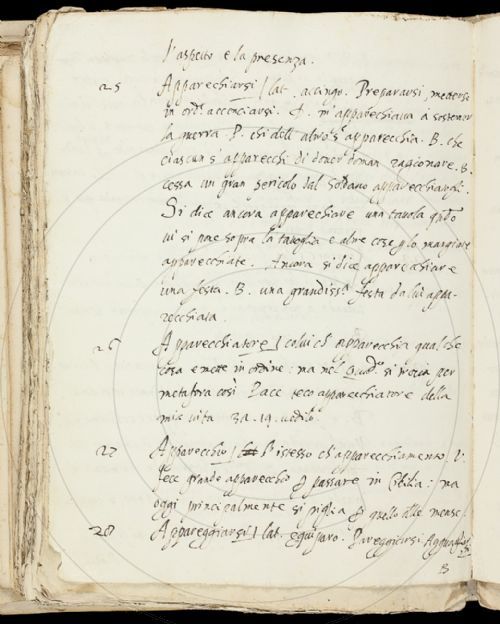 l'aspetto e la presenza.
25 Apparechiarsi / lat. accingo. Prepararsi, mettersi
in ord. acconciarsi. D. m'apparecchiava a sostener
la guerra P. chi dell' altro s' apparecchia. B. che
ciascun s' apparecchi di dover doman ragionare. B.
cessa un gran pericolo dal Soldano apparecchiatogli.
Si dice ancora apparechiare una tavola
vi si pone sopra la tavoglia e altre cose lo mangiare
apparecchiate. Ancora si dice apparecchiare
una festa. B. una grandiss. festa da lui appa-
recchiata
26 Apparecchiatore / colui ch' apparecchia qualche
cosa e mette in ordine: ma nel si trova per
metafora così Pace teco apparecchiatore della
mia vita 3a. 19.
27 Apparecchio / l'istesso ch' apparecchiamento. V.
fece grande apparecchio passare in Cicilia: ma
oggi principalmente si piglia quello delle mense.
28 Appareggiarsi / lat. equiparo. Pareggiarsi